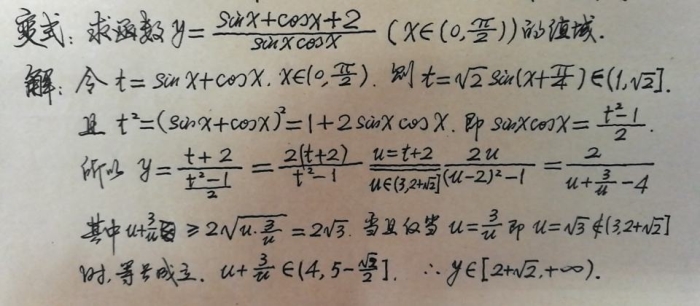 变式：求函数 y = \frac{sinx+cosx+2}{sinxcosx} (x∈(0,\frac{π}{2})) 的值域.
解：令 t = sinx+cosx. x∈(0,\frac{π}{2}). 则 t=√2 sin(x+\frac{π}{4})∈(1,√2].
且 t²=(sinx+cosx)²=1+2sinxcosx. 即 sinxcosx=\frac{t²-1}{2}.
所以 y=\frac{t+2}{\frac{t²-1}{2}}=\frac{2(t+2)}{t²-1} \xlongequal[u∈(3,2+√2]]{u=t+2} \frac{2u}{(u-2)²-1}=\frac{2}{u+\frac{3}{u}-4}
其中 u+\frac{3}{u} ≥2\sqrt{u·\frac{3}{u}}=2√3. 当且仅当 u=\frac{3}{u} 即 u=√3∉(3,2+√2]
时，等号成立. u+\frac{3}{u}∈(4,5-\frac{√2}{2}]. ∴y∈[2+√2,+∞).